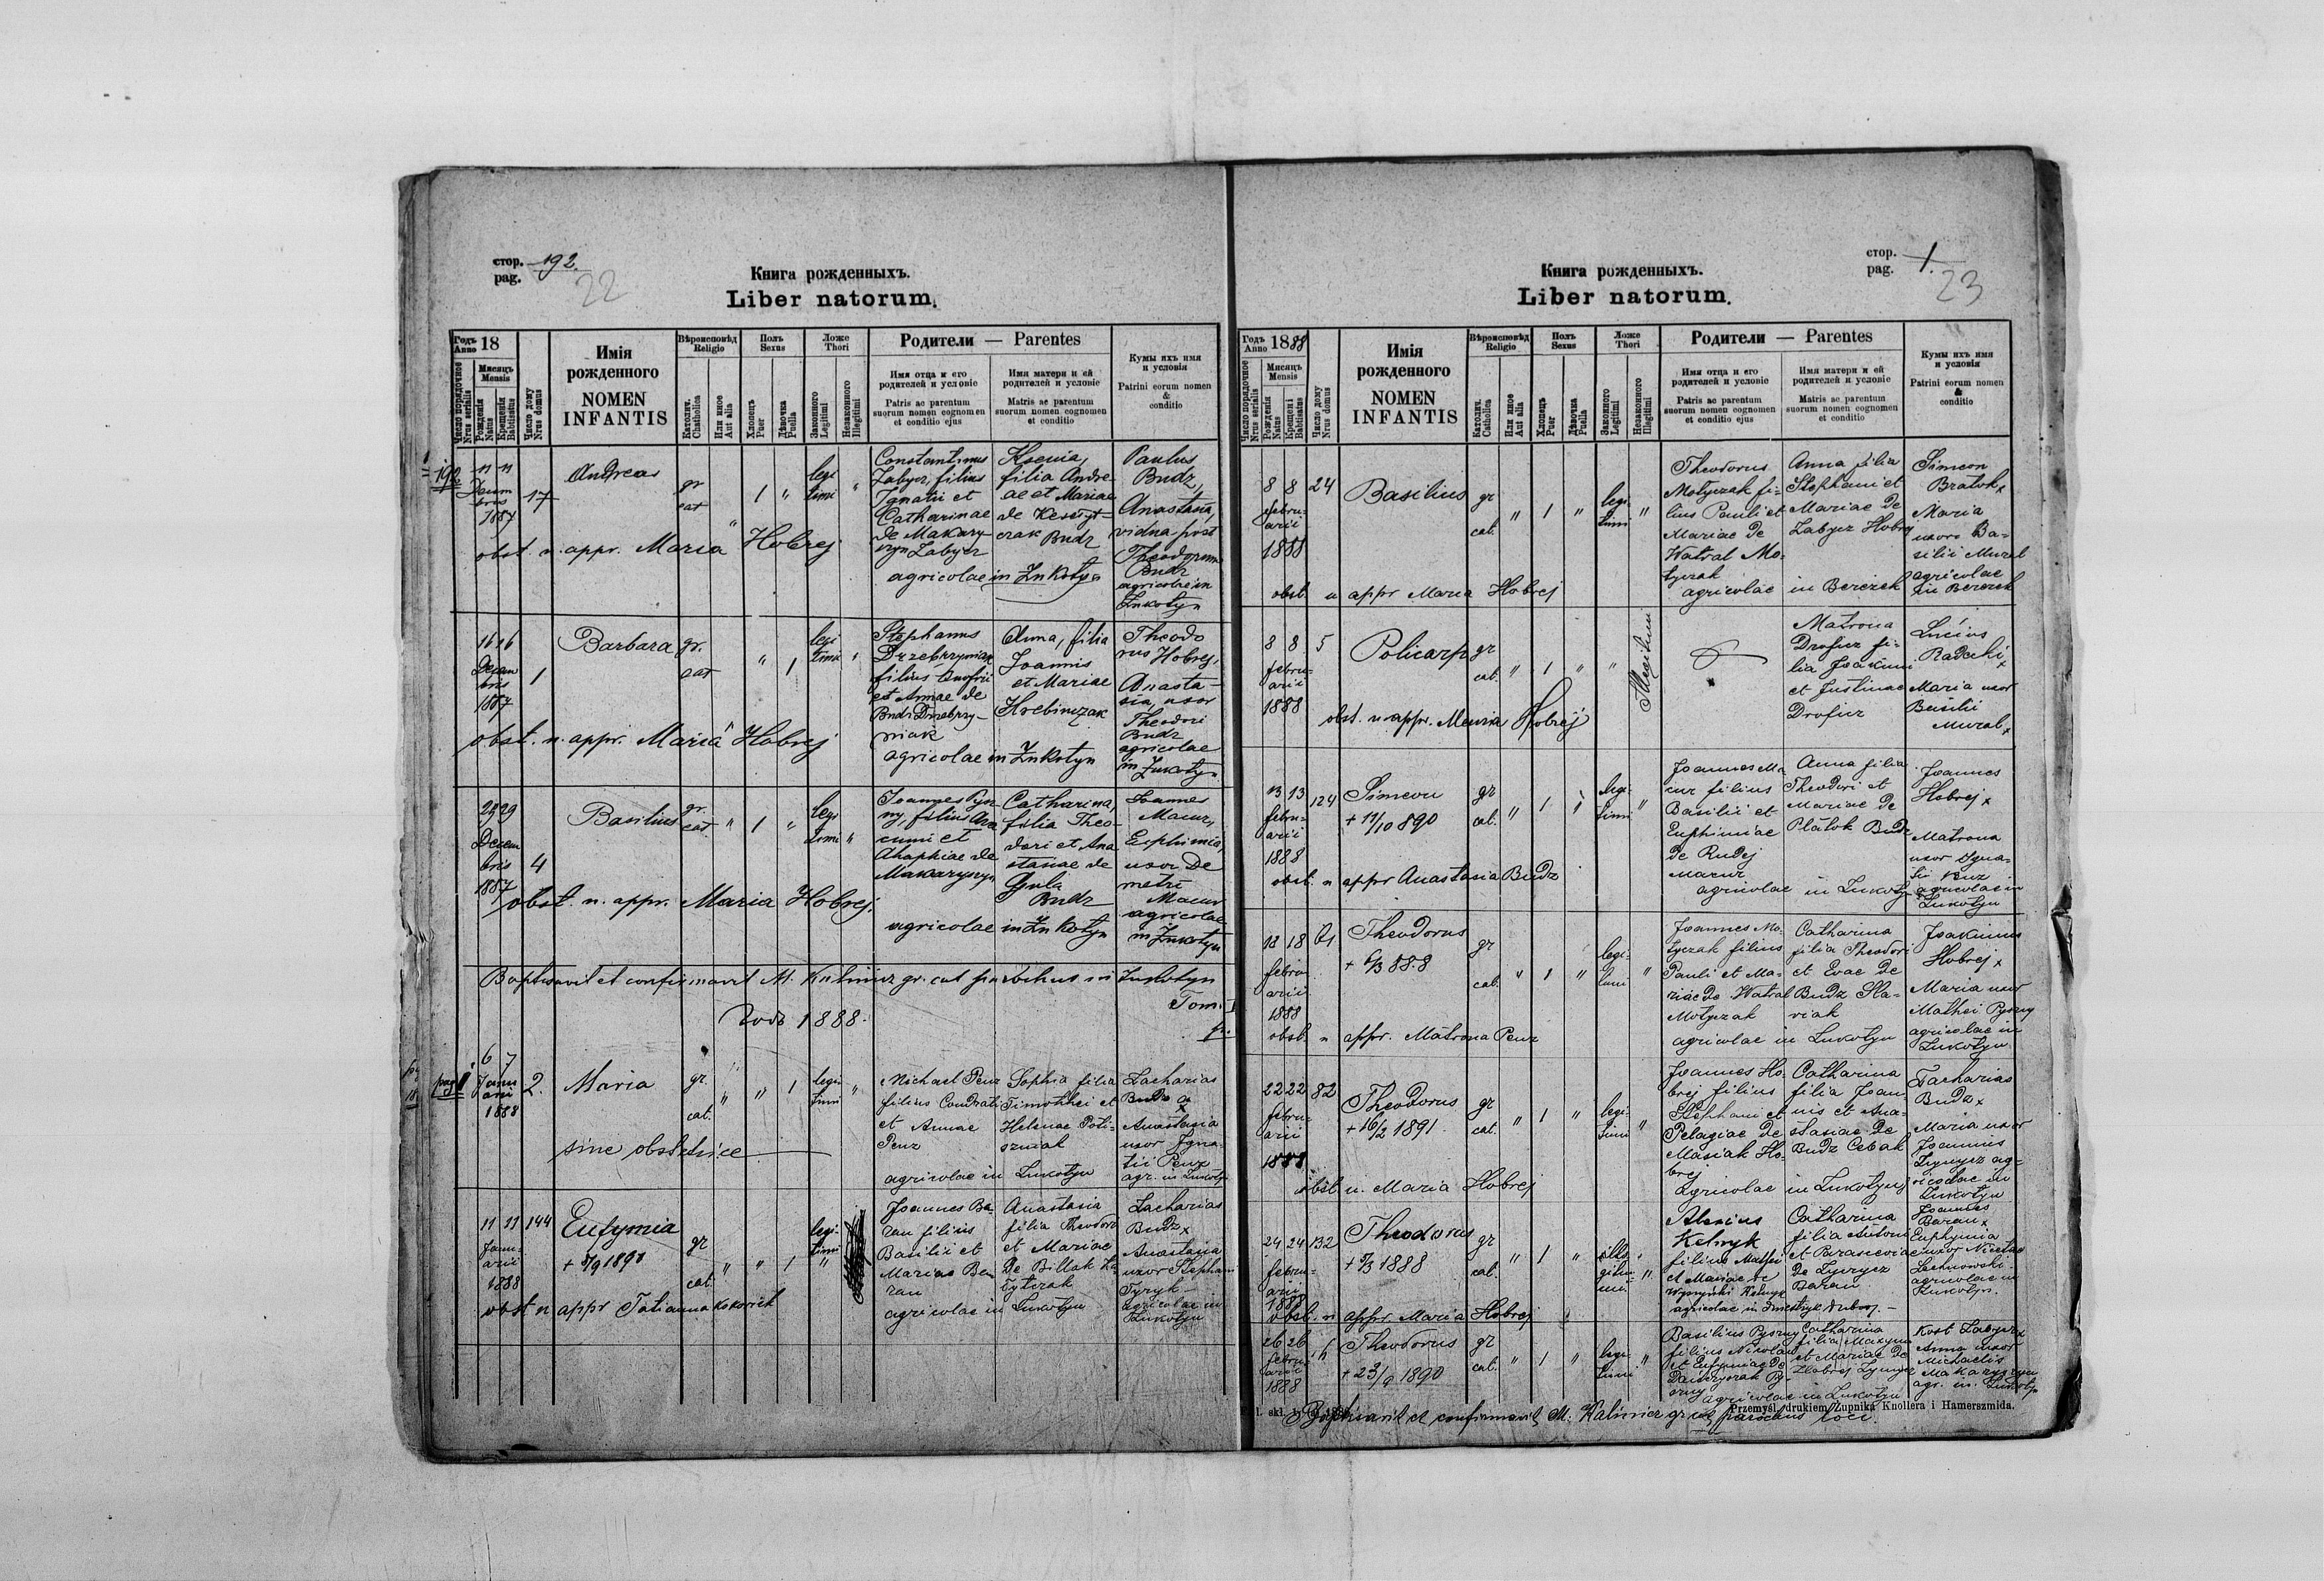 стор. 192.
pag. 22
Книга рожденныхъ.
Liber natorum.
Годъ Anno 18
Число порядочное Nrus serialis
Мисяцъ Mensis
Рождения Natus
Крещения Babtisatus
Число дому Nrus domus
Имія рожденного
NOMEN INFANTIS
Вѣроисповѣд Religio
Католич. Chatholica
Или иное Aut alia
Полъ Sexus
Хлопецъ Puer
Дѣвочка Puella
Ложе Thori
Законного Legitimi
Незаконного Illegitimi
Родители — Parentes
Имя отца и его родителей и условіе
Patris ac parentum suorum nomen cognomen et conditio ejus
Имя матери и ей родителей и условіе
Matris ac parentum suorum nomen cognomen et conditio
Кумы ихъ имя и условія
Patrini eorum nomen & conditio
192 11 11 Decembris 1887 17 Andreas gr cat " 1 " legitimi "
Constantinus
Labycz, filius
Ignatii et
Catharinae
de Makary
Labycz
Ksenia,
filia Andre
ae et Mariae
Budz
Paulus
Budz,
Anastasia,
vidua post
Theodorum
Budz
agricolae in
Żukotyn
obst. n. appr. Maria Hobrej
agricolae in Żukotyn
16 16 Decembris 1887 1 Barbara gr. cat " 1 legitimi "
Stephanus
filius Onofrii
et Annae de
Budz
niak
Anna, filia
Joannis
et Mariae
Hrebinczak
Theodo
rus Hobrej,
Anasta-
sia, uxor
Theodori
Budz
agricolae
in Żukotyn
obst. n. appr. Maria Hobrej
agricolae in Żukotyn
29 29 Decembris 1887 4 Basilius gr. cat " 1 " legitimi "
Joannes Pysz
ny, filius
et
Ahaphiae de
Catharina,
filia Theo-
dori et Ana
stasiae de
Gula
Budz
Joannes
Macur,
Euphimia,
uxor De
metri
Macur
agricolae
in Żukotyn
obst. n. appr. Maria Hobrej.
agricolae in Żukotyn
Baptisavit et confirmavit M. Kalimicz gr. cat parochus in Żukotyn
Tom. I
Годъ 1888.
pag 1 6 7 Januarii 1888 2. Maria gr. cat. " " 1 legitimi "
Michael Penz
filius Condrati
et Annae
Penz
Sophia filia
Timothei et
Helenae Poli-
szczak
Zacharias
Budz
x
Anastasia
uxor Igna-
tii Penz
agr. in Żukotyn
sine obstetrice
agricolae in Żukotyn
11 11 Januarii 1888 144 Eufymia gr cat. " " 1 legitimi "
Joannes Ba
ran filius
Basilii et
Mariae Ba
ran
Anastasia
filia Theodori
et Mariae
De Billak
Zacharias
Budz x
Anastasia
uxor Stephani
Tyryk
agricolae in
Żukotyn
obst n appr Tatianna Kokovich
agricolae in Żukotyn
стор. 1.
pag. 23
Книга рожденныхъ.
Liber natorum.
Годъ Anno 1888
Число порядочное Nrus serialis
Мисяцъ Mensis
Рождения Natus
Крещені Babtisatus
Число дому Nrus domus
Имія рожденного
NOMEN INFANTIS
Вѣроисповѣд Religio
Католич. Catholica
Или иное Aut alia
Полъ Sexus
Хлопецъ Puer
Дѣвочка Puella
Ложе Thori
Законного Legitimi
Незаконного Illegitimi
Родители — Parentes
Имя отца и его родителей и условіе
Patris ac parentum suorum nomen cognomen et conditio ejus
Имя матери и ей родителей и условіе
Matris ac parentum suorum nomen cognomen et conditio
Кумы ихъ имя и условія
Patrini eorum nomen & conditio
8 8 februarii 1888 24 Basilius gr cat. " 1 " legitimi "
Theodorus
Motyczak fi-
lius Pauli et
Mariae De
Watral Mo-
tyczak
Anna filia
Stephani et
Mariae De
Labycz Hobrej
Simeon
Bratok x
Maria
uxor Ba-
silii Mural
agricolae
in Berezek
obst. n appr Maria Hobrej
agricolae in Berezek
8 8 februarii 1888 5 Policarp gr cat. " 1 " " Illegitimi
Matrona
Droficz fi-
lia Joakimi
et Justinae
Droficz
Lucius
Radecki x
Maria uxor
Basilii
Mural x
obst. n. appr. Maria Hobrej
13 13 februarii 1888 124 Simeon gr cat. " 1 " legitimi "
+ 11/10 890
Joannes Ma
cur filius
Basilii et
Euphimiae
De Rudej
Macur
Anna filia
Theodori et
Mariae De
Platok Budz
Joannes
Hobrej x
Matrona
uxor Igna-
tii
agricolae in
Żukotyn
obst. n appr Anastasia Budz
agricolae in Żukotyn
18 18 februarii 1888 Theodorus gr cat. " 1 " legitimi "
+ 6/3 888
Joannes Mo-
tyczak filius
Pauli et Ma-
riae De Watral
Motyczak
Catharina
filia Theodori
et Evae De
Budz Sla-
viak
Joakimus
Hobrej x
Maria uxor
Mathei Pyszny
agricolae in
Żukotyn
obst. n appr. Matrona Penz
agricolae in Żukotyn
22 22 februarii 1888 82 Theodorus gr cat. " 1 " legitimi "
+ 16/2 1891
Joannes Ho-
brej filius
Stephani et
Pelagiae De
Masiak Ho-
brej
Catharina
filia Joan-
nis et Ana-
stasiae De
Budz Cebak
Zacharias
Budz x
Maria uxor
Joannis
Żyrycz ag-
ricolae in
Żukotyn
obst n. Maria Hobrej
agricolae in Żukotyn
24 24 februarii 1888 132 Theodorus gr cat. " 1 "
+ 5/3 1888
Alexius
Kelnyk
filius Mathei
et Mariae De
Kelnyk
Catharina
filia Antoni
et Parasceviae
De Żyrycz
Baran
Joannes
Baran x
Euphymia
uxor Nicetae
Lechnowski
agricolae in
Żukotyn.
obst. n appr. Maria Hobrej
26 26 februarii 1888 Theodorus gr cat. " 1 " legitimi "
1890
Basilius Pyszny
filius Nicolai
et Eufymiae De
Catharina
filia Maxymi
et Mariae De
Hobrej Żyrycz
Kost Labycz x
Anna uxor
Michaelis
Makaryszyn
agr. in Żukotyn
agricolae in Żukotyn
Baptisavit et confirmavit M. Kalimicz gr cat parochus loci.
Przemyśl, drukiem Żupnika Knollera i Hamerszmida.